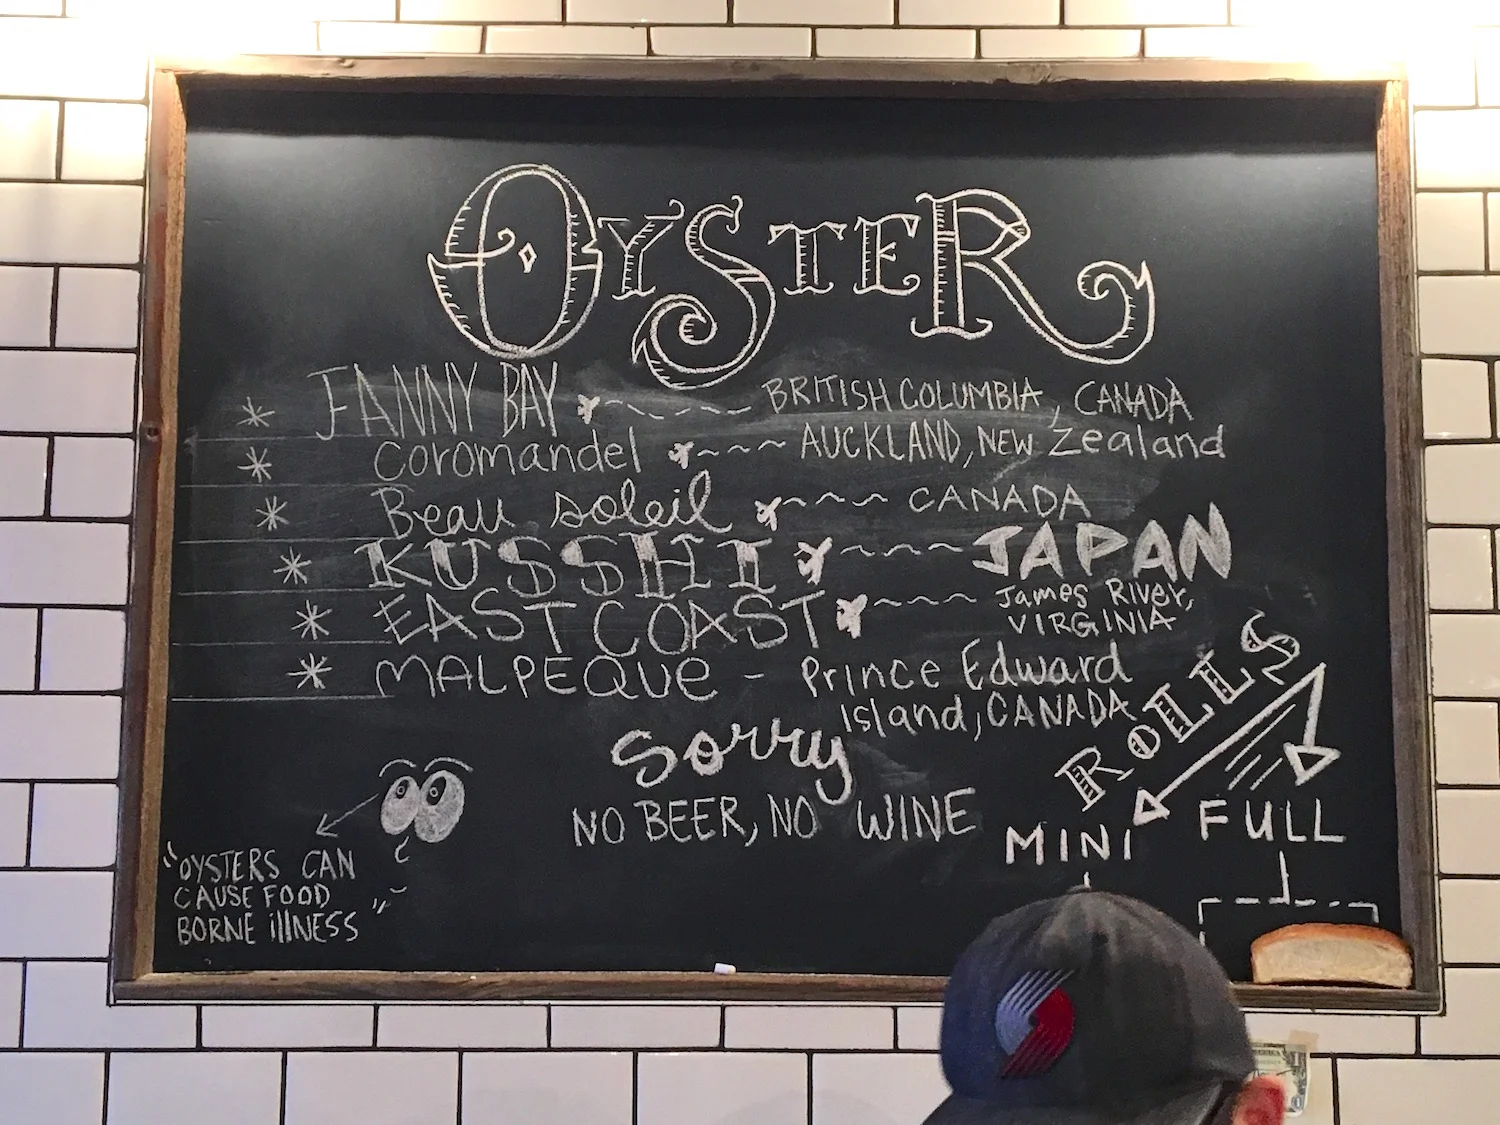 OYSTER
* FANNY BAY - - - BRITISH COLUMBIA, CANADA
* Coromandel ~~~ AUCKLAND, NEW Zealand
* Beau soleil ~~~ CANADA
* KUSSHI ~~~ JAPAN
* EAST COAST ~~~ James River,
VIRGINIA
* MALPEQUE - Prince Edward
Island, CANADA
ROLLS
Sorry
NO BEER, NO WINE
MINI
FULL
"OYSTERS CAN
CAUSE FOOD
BORNE illNESS"